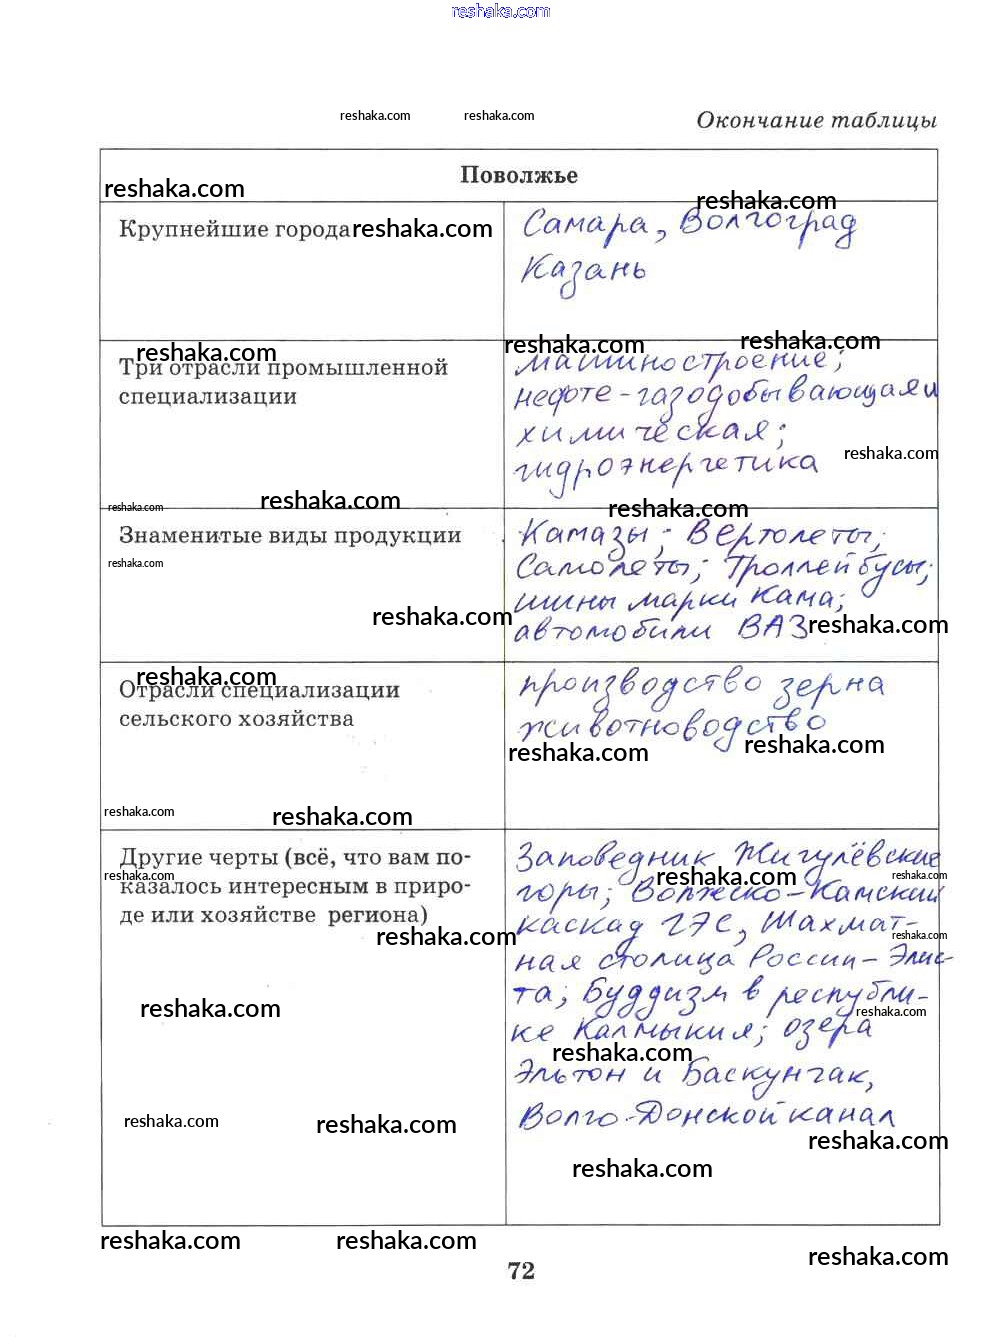 reshaka.com
reshaka.com reshaka.com
Окончание таблицы
Поволжье
reshaka.com
reshaka.com
Крупнейшие города
reshaka.com
Самара, Волгоград
Казань
reshaka.com
reshaka.com
reshaka.com
Три отрасли промышленной
специализации
машиностроение;
нефте-газодобывающая и
химическая;
гидроэнергетика
reshaka.com
reshaka.com
reshaka.com
reshaka.com
Знаменитые виды продукции
reshaka.com
Камазы; Вертолеты;
Самолеты; Троллейбусы;
шины марки Кама;
автомобили ВАЗ
reshaka.com
reshaka.com
reshaka.com
Отрасли специализации
сельского хозяйства
производство зерна
животноводство
reshaka.com
reshaka.com
reshaka.com
reshaka.com
Другие черты (всё, что вам по-
казалось интересным в приро-
де или хозяйстве региона)
reshaka.com
reshaka.com
reshaka.com
reshaka.com
reshaka.com
Заповедник Жигулёвские
горы; Волжско-Камский
каскад ГЭС, Шахмат-
ная столица России-Элис-
та; Буддизм в республи-
ке Калмыкия; озера
Эльтон и Баскунчак,
Волго-Донской канал
reshaka.com
reshaka.com
reshaka.com
reshaka.com
reshaka.com
reshaka.com
reshaka.com
reshaka.com
reshaka.com
reshaka.com
72